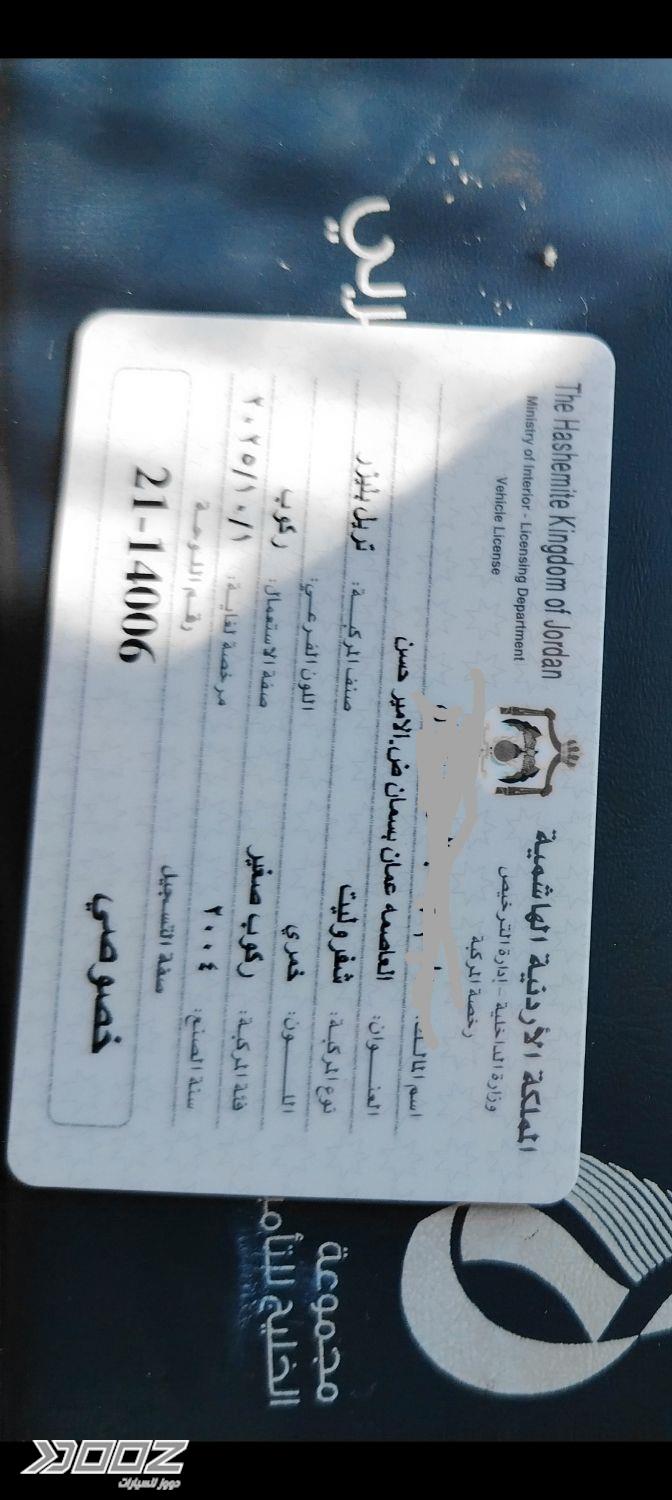 The Hashemite Kingdom of Jordan
Ministry of Interior - Licensing Department
Vehicle License
المملكة الأردنية الهاشمية
وزارة الداخلية - إدارة الترخيص
رخصة المركبة
اسم المالك:
العنوان: العاصمه عمان بسمان ض.الامير حسن
نوع المركبة: شفروليت صنف المركبة: تريل بليزر
اللـــون: خمري اللون الفرعي:
فئة المركبة: ركوب صغير صفة الاستعمال: ركوب
سنة الصنع: ٢٠٠٤ مرخصة لغاية: ٢٠٢٥/١٠/١
صفة التسجيل رقم اللوحة
خصوصي 21-14006
مجموعة
الخليج للتأم
DOOZ
دووز للسيارات